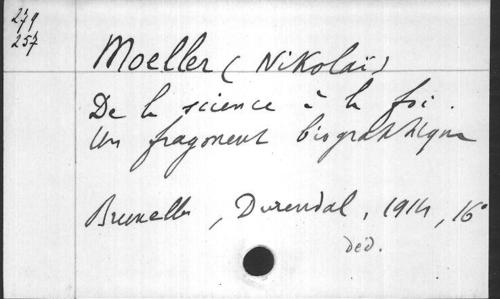 279
257
Moeller (Nikolaï)
De la science à la foi.
Un fragment biographique
Bruxelles, Durendal, 1914, 16°
déd.